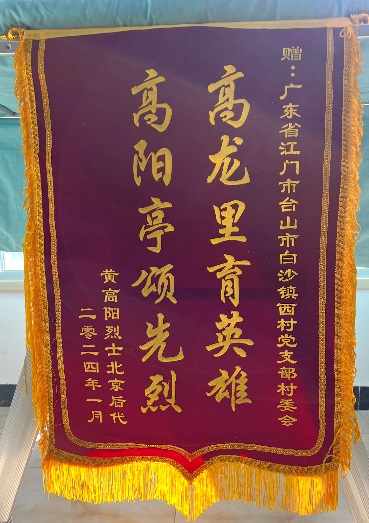 赠：广东省江门市台山市白沙镇西村党支部村委会
高龙里育英雄
高阳亭颂先烈
黄高阳烈士北京后代
二零二四年一月